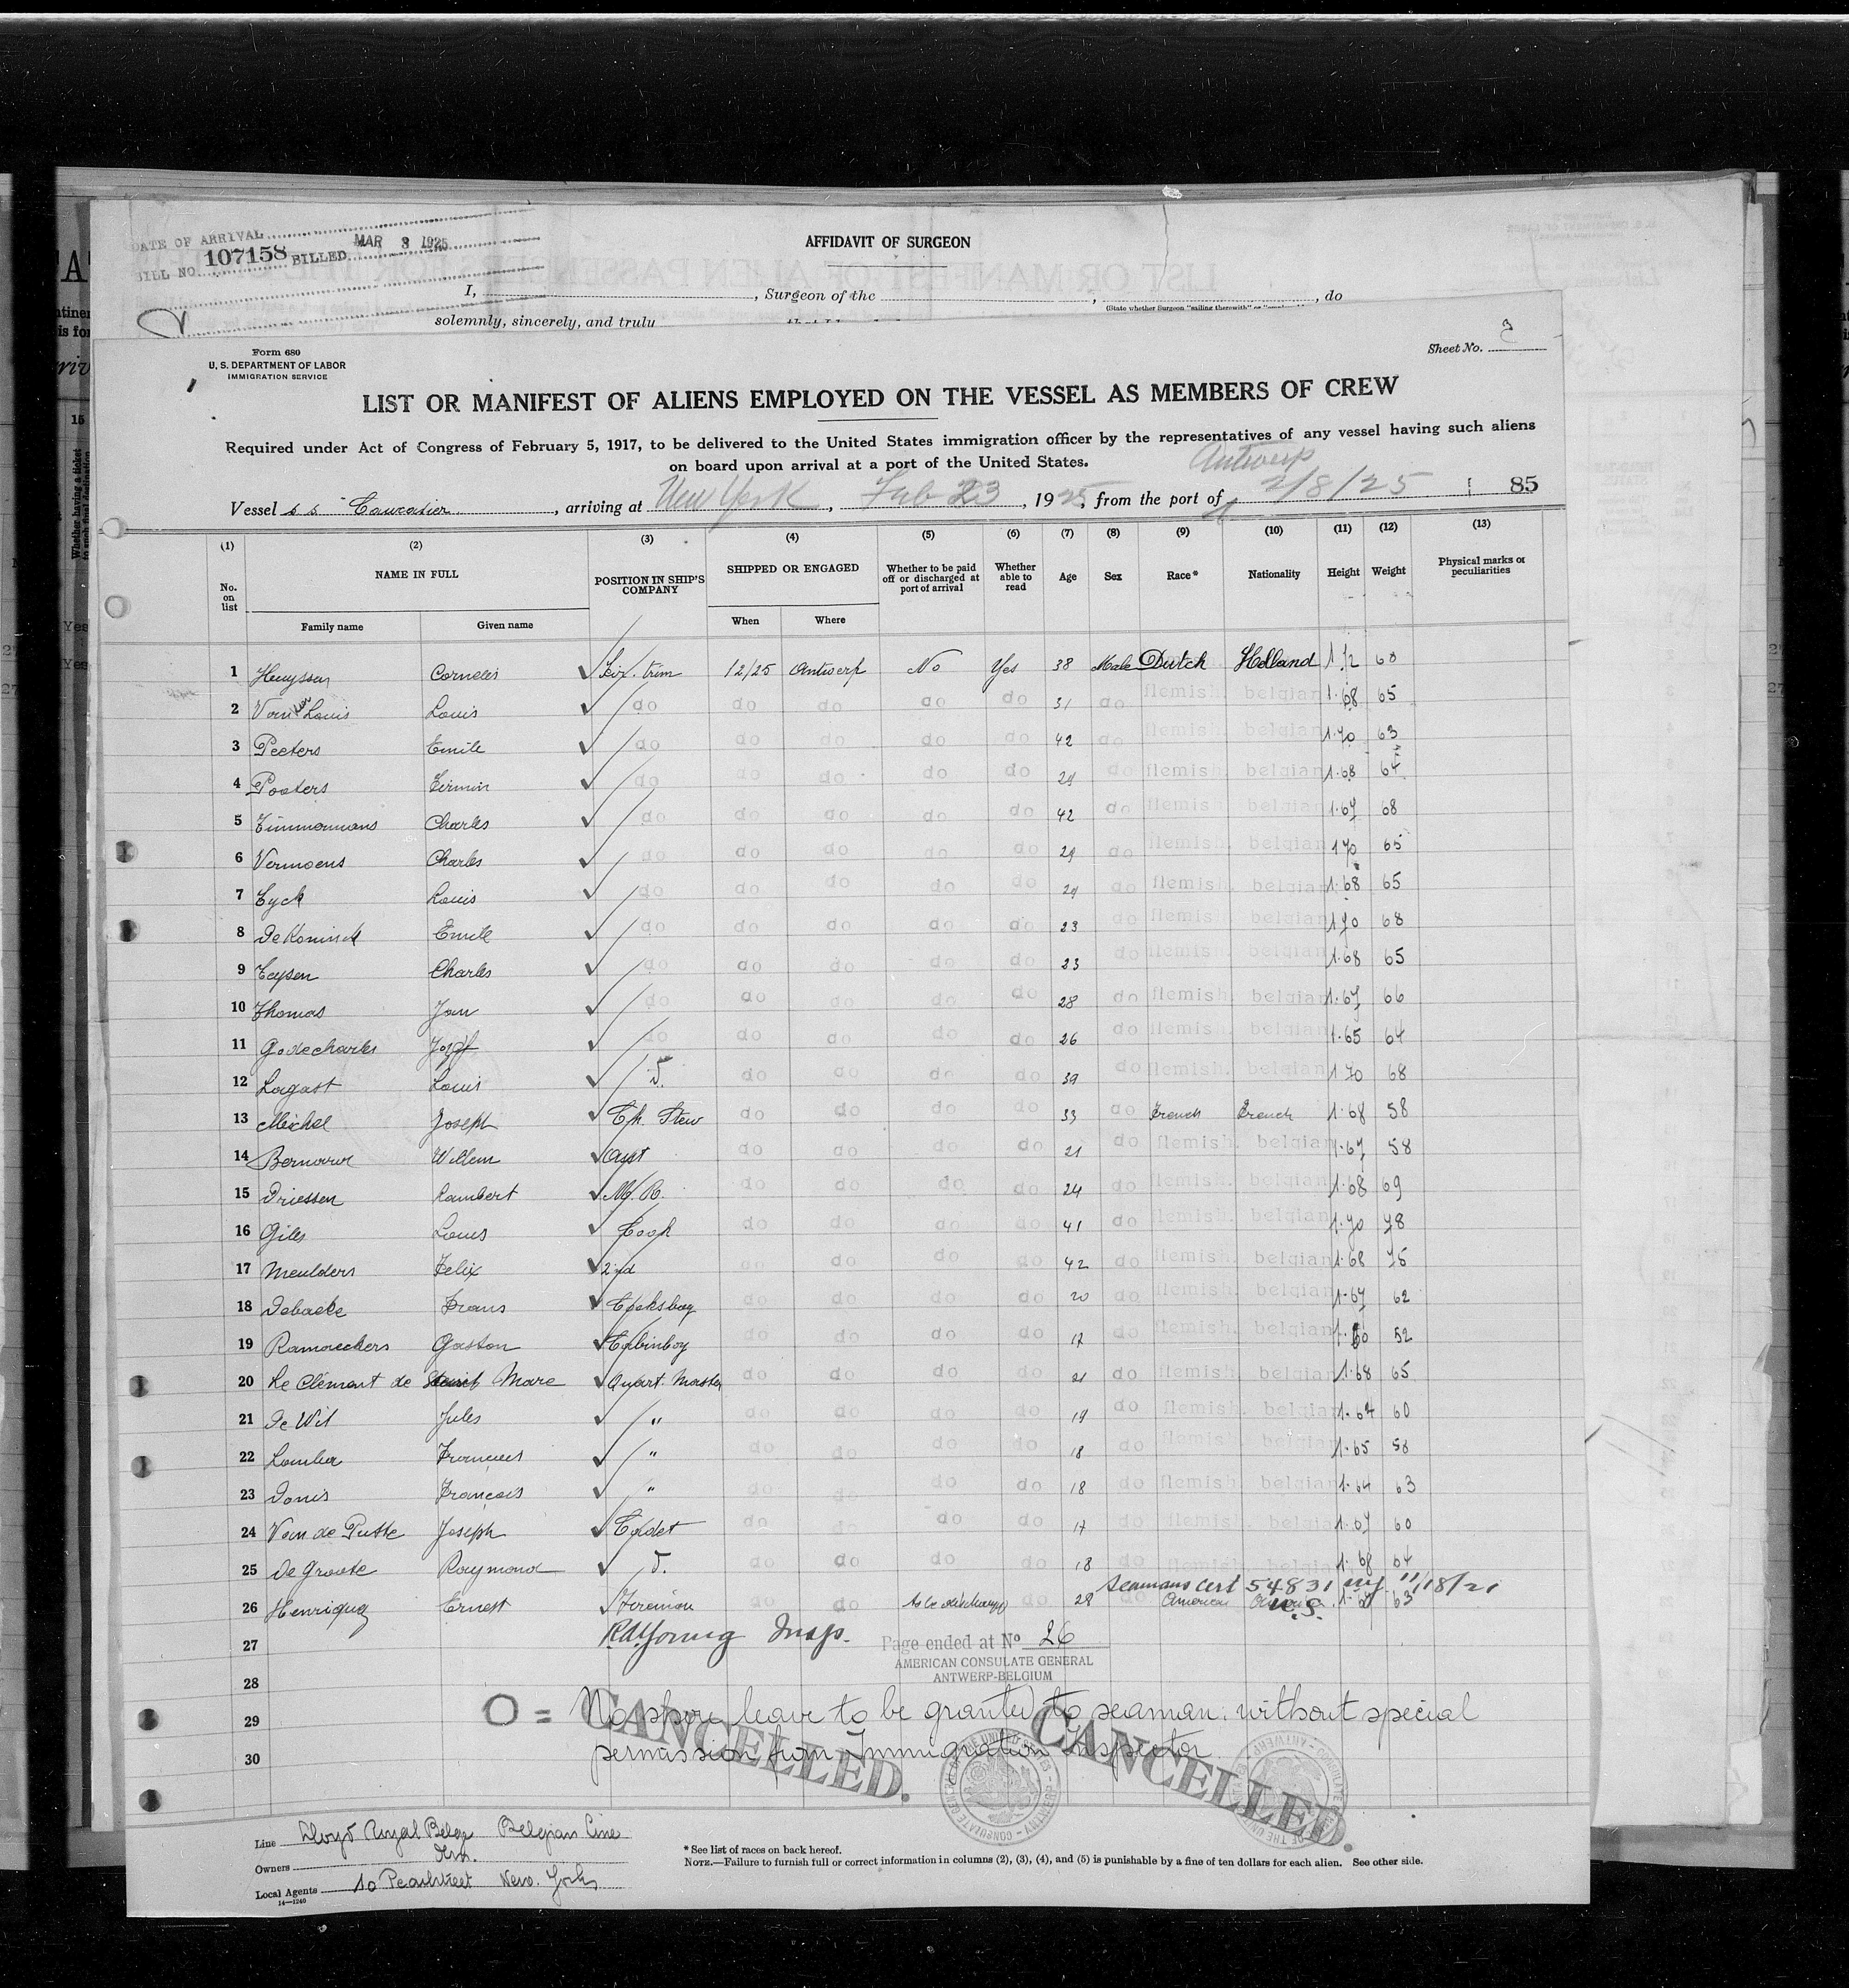 DATE OF ARRIVAL
BILL NO. 107158 BILLED MAR 3 1925
AFFIDAVIT OF SURGEON
I, , Surgeon of the , , do
(State whether Surgeon "sailing therewith" or
solemnly, sincerely, and truly
Form 680
U. S. DEPARTMENT OF LABOR
IMMIGRATION SERVICE
Sheet No.
LIST OR MANIFEST OF ALIENS EMPLOYED ON THE VESSEL AS MEMBERS OF CREW
Required under Act of Congress of February 5, 1917, to be delivered to the United States immigration officer by the representatives of any vessel having such aliens
on board upon arrival at a port of the United States.
Antwerp
Vessel s s Caucasier, arriving at New York, Feb 23, 1925, from the port of 2/8/25 85
(1) (2) (3) (4) (5) (6) (7) (8) (9) (10) (11) (12) (13)
No. on list NAME IN FULL POSITION IN SHIP'S COMPANY SHIPPED OR ENGAGED Whether to be paid off or discharged at port of arrival Whether able to read Age Sex Race* Nationality Height Weight Physical marks or peculiarities
Family name Given name When Where
1 Cornelis trim 12/25 Antwerp No Yes 38 Male Dutch Holland 60
2 Van Louis Louis do do do do do 31 do flemish. belgian 1.68 65
3 Peeters Emile do do do do do 42 do flemish. belgian 1.70 63
4 Pooters Firmin do do do do do 29 do flemish belgian 1.68 64
5 Timmermans Charles do do do do do 42 do flemish belgian 1.67 68
6 Vermoens Charles do do do do do 29 do flemish. belgian 170 65
7 Eyck Louis do do do do do 29 do flemish. belgian 1.68 65
8 De Koninck Emile do do do do do 23 do flemish. belgian 170 68
9 Charles do do do do do 23 do flemish. belgian 1.68 65
10 Thomas Jan do do do do do 28 do flemish. belgian 1.67 66
11 Godecharles Jozef do do do do do 26 do flemish. belgian 1.65 64
12 Lagast Louis do do do do 39 do flemish. belgian 170 68
13 Michel Joseph Ch. Stew do do do do 33 do French French 1.68 58
14 Willem Asst do do do do 21 do flemish. belgian 1.67 58
15 Driessen Lambert do do do do 24 do flemish. belgian 1.68 69
16 Gilis Louis Cook do do do do 41 do flemish. belgian 1.70 78
17 Meulders Felix 2nd do do do do 42 do flemish. belgian 1.68 75
18 Debacke Frans Cooksboy do do do do 20 do flemish. belgian 1.67 62
19 Ramaeckers Gaston Cabinboy do do do do 17 do flemish. belgian 52
20 Le Clément de Marc Quart. Master do do do do 21 do flemish. belgian 1.68 65
21 De Wit Jules " do do do do 19 do flemish. belgian 60
22 " do do do do 18 do flemish belgian 1.65 58
23 Donis Francois " do do do do 18 do flemish belgian 1.64 63
24 Van de Putte Joseph Cadet do do do do 17 do flemish. belgian 1.67 60
25 De Groote Raymond do do do do 18 do flemish. belgian 1.68 64
Seamans cert 54831 11/18/21
26 Ernest Fireman do do To be discharged do 28 do American U.S. 63
27 Insp. Page ended at No 26
AMERICAN CONSULATE GENERAL
28 ANTWERP-BELGIUM
29 O = No shore leave to be granted to seaman: without special
30 permission from Immigration Inspector.
CANCELLED. CANCELLED.
Line Lloyd Royal Belge Belgian Line
Owners
Local Agents 10 Pearlstreet New. York
14—1240
* See list of races on back hereof.
NOTE.—Failure to furnish full or correct information in columns (2), (3), (4), and (5) is punishable by a fine of ten dollars for each alien. See other side.